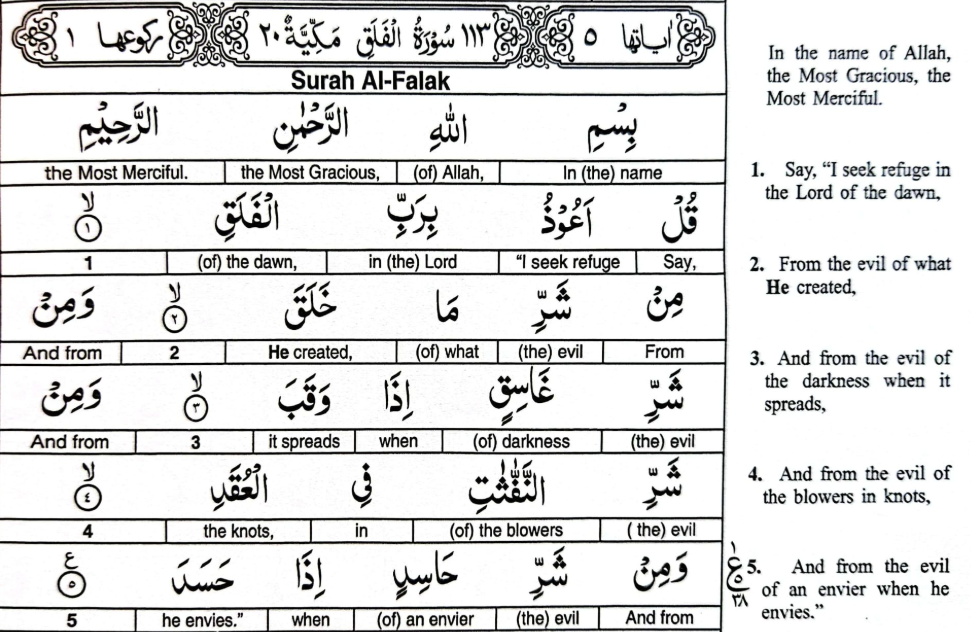 اٰيَاتُهَا ٥ ١١٣ سُوْرَةُ الْفَلَقِ مَكِّيَّةٌ ٢٠ رُكُوْعُهَا ١
Surah Al-Falak
بِسْمِ اللّٰهِ الرَّحْمٰنِ الرَّحِيْمِ
In (the) name (of) Allah, the Most Gracious, the Most Merciful.
قُلْ اَعُوْذُ بِرَبِّ الْفَلَقِ ۙ ١
Say, “I seek refuge in (the) Lord (of) the dawn, 1
مِنْ شَرِّ مَا خَلَقَ ۙ ٢ وَمِنْ
From (the) evil (of) what He created, 2 And from
شَرِّ غَاسِقٍ اِذَا وَقَبَ ۙ ٣ وَمِنْ
(the) evil (of) darkness when it spreads 3 And from
شَرِّ النَّفّٰثٰتِ فِي الْعُقَدِ ۙ ٤
( the) evil (of) the blowers in the knots, 4
وَمِنْ شَرِّ حَاسِدٍ اِذَا حَسَدَ ع ٥
And from (the) evil (of) an envier when he envies.” 5
In the name of Allah,
the Most Gracious, the
Most Merciful.
1. Say, “I seek refuge in
the Lord of the dawn,
2. From the evil of what
He created,
3. And from the evil of
the darkness when it
spreads,
4. And from the evil of
the blowers in knots,
5. And from the evil
of an envier when he
envies.”
١
ع
٥
٣٨